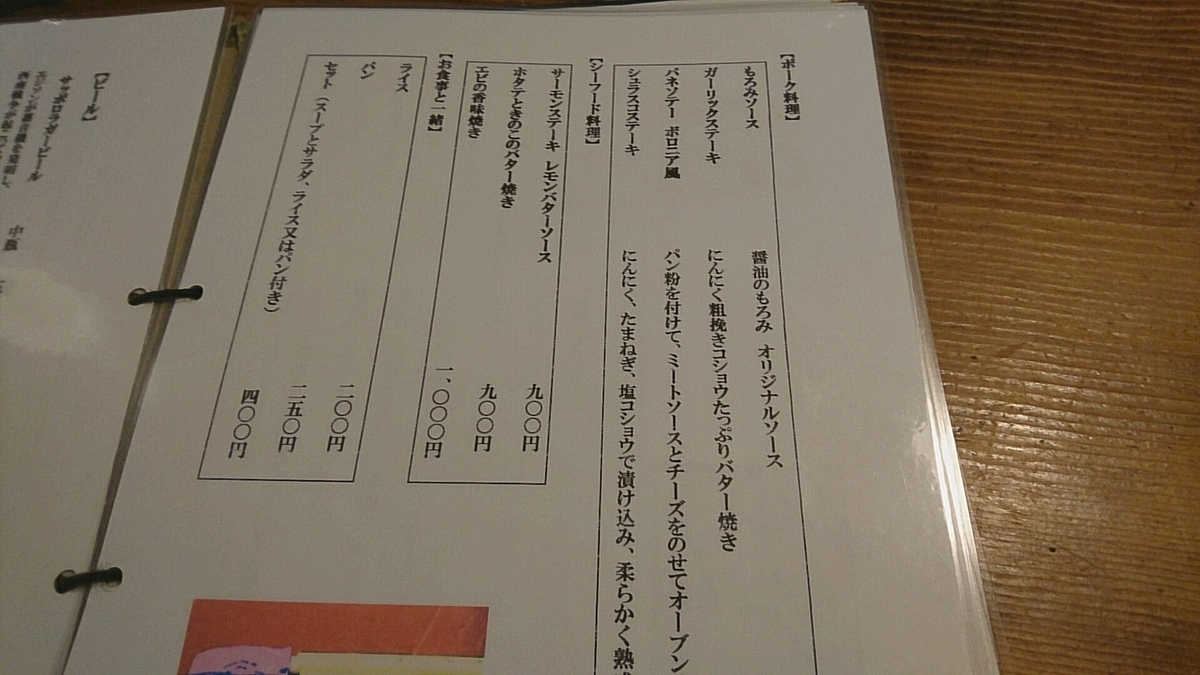 【ポーク料理】
もろみソース　醤油のもろみ　オリジナルソース
ガーリックステーキ　にんにく粗挽きコショウたっぷりバター焼き
パネソテー　ボロニア風　パン粉を付けて、ミートソースとチーズをのせてオーブン
シュラスコステーキ　にんにく、たまねぎ、塩コショウで漬け込み、柔らかく熟
【シーフード料理】
サーモンステーキ　レモンバターソース　九〇〇円
ホタテときのこのバター焼き　九〇〇円
エビの香味焼き　一、〇〇〇円
【お食事と一緒】
ライス　二〇〇円
パン　二五〇円
セット（スープとサラダ、ライス又はパン付き）　四〇〇円
【ビール】
サッポロラガービール　中瓶